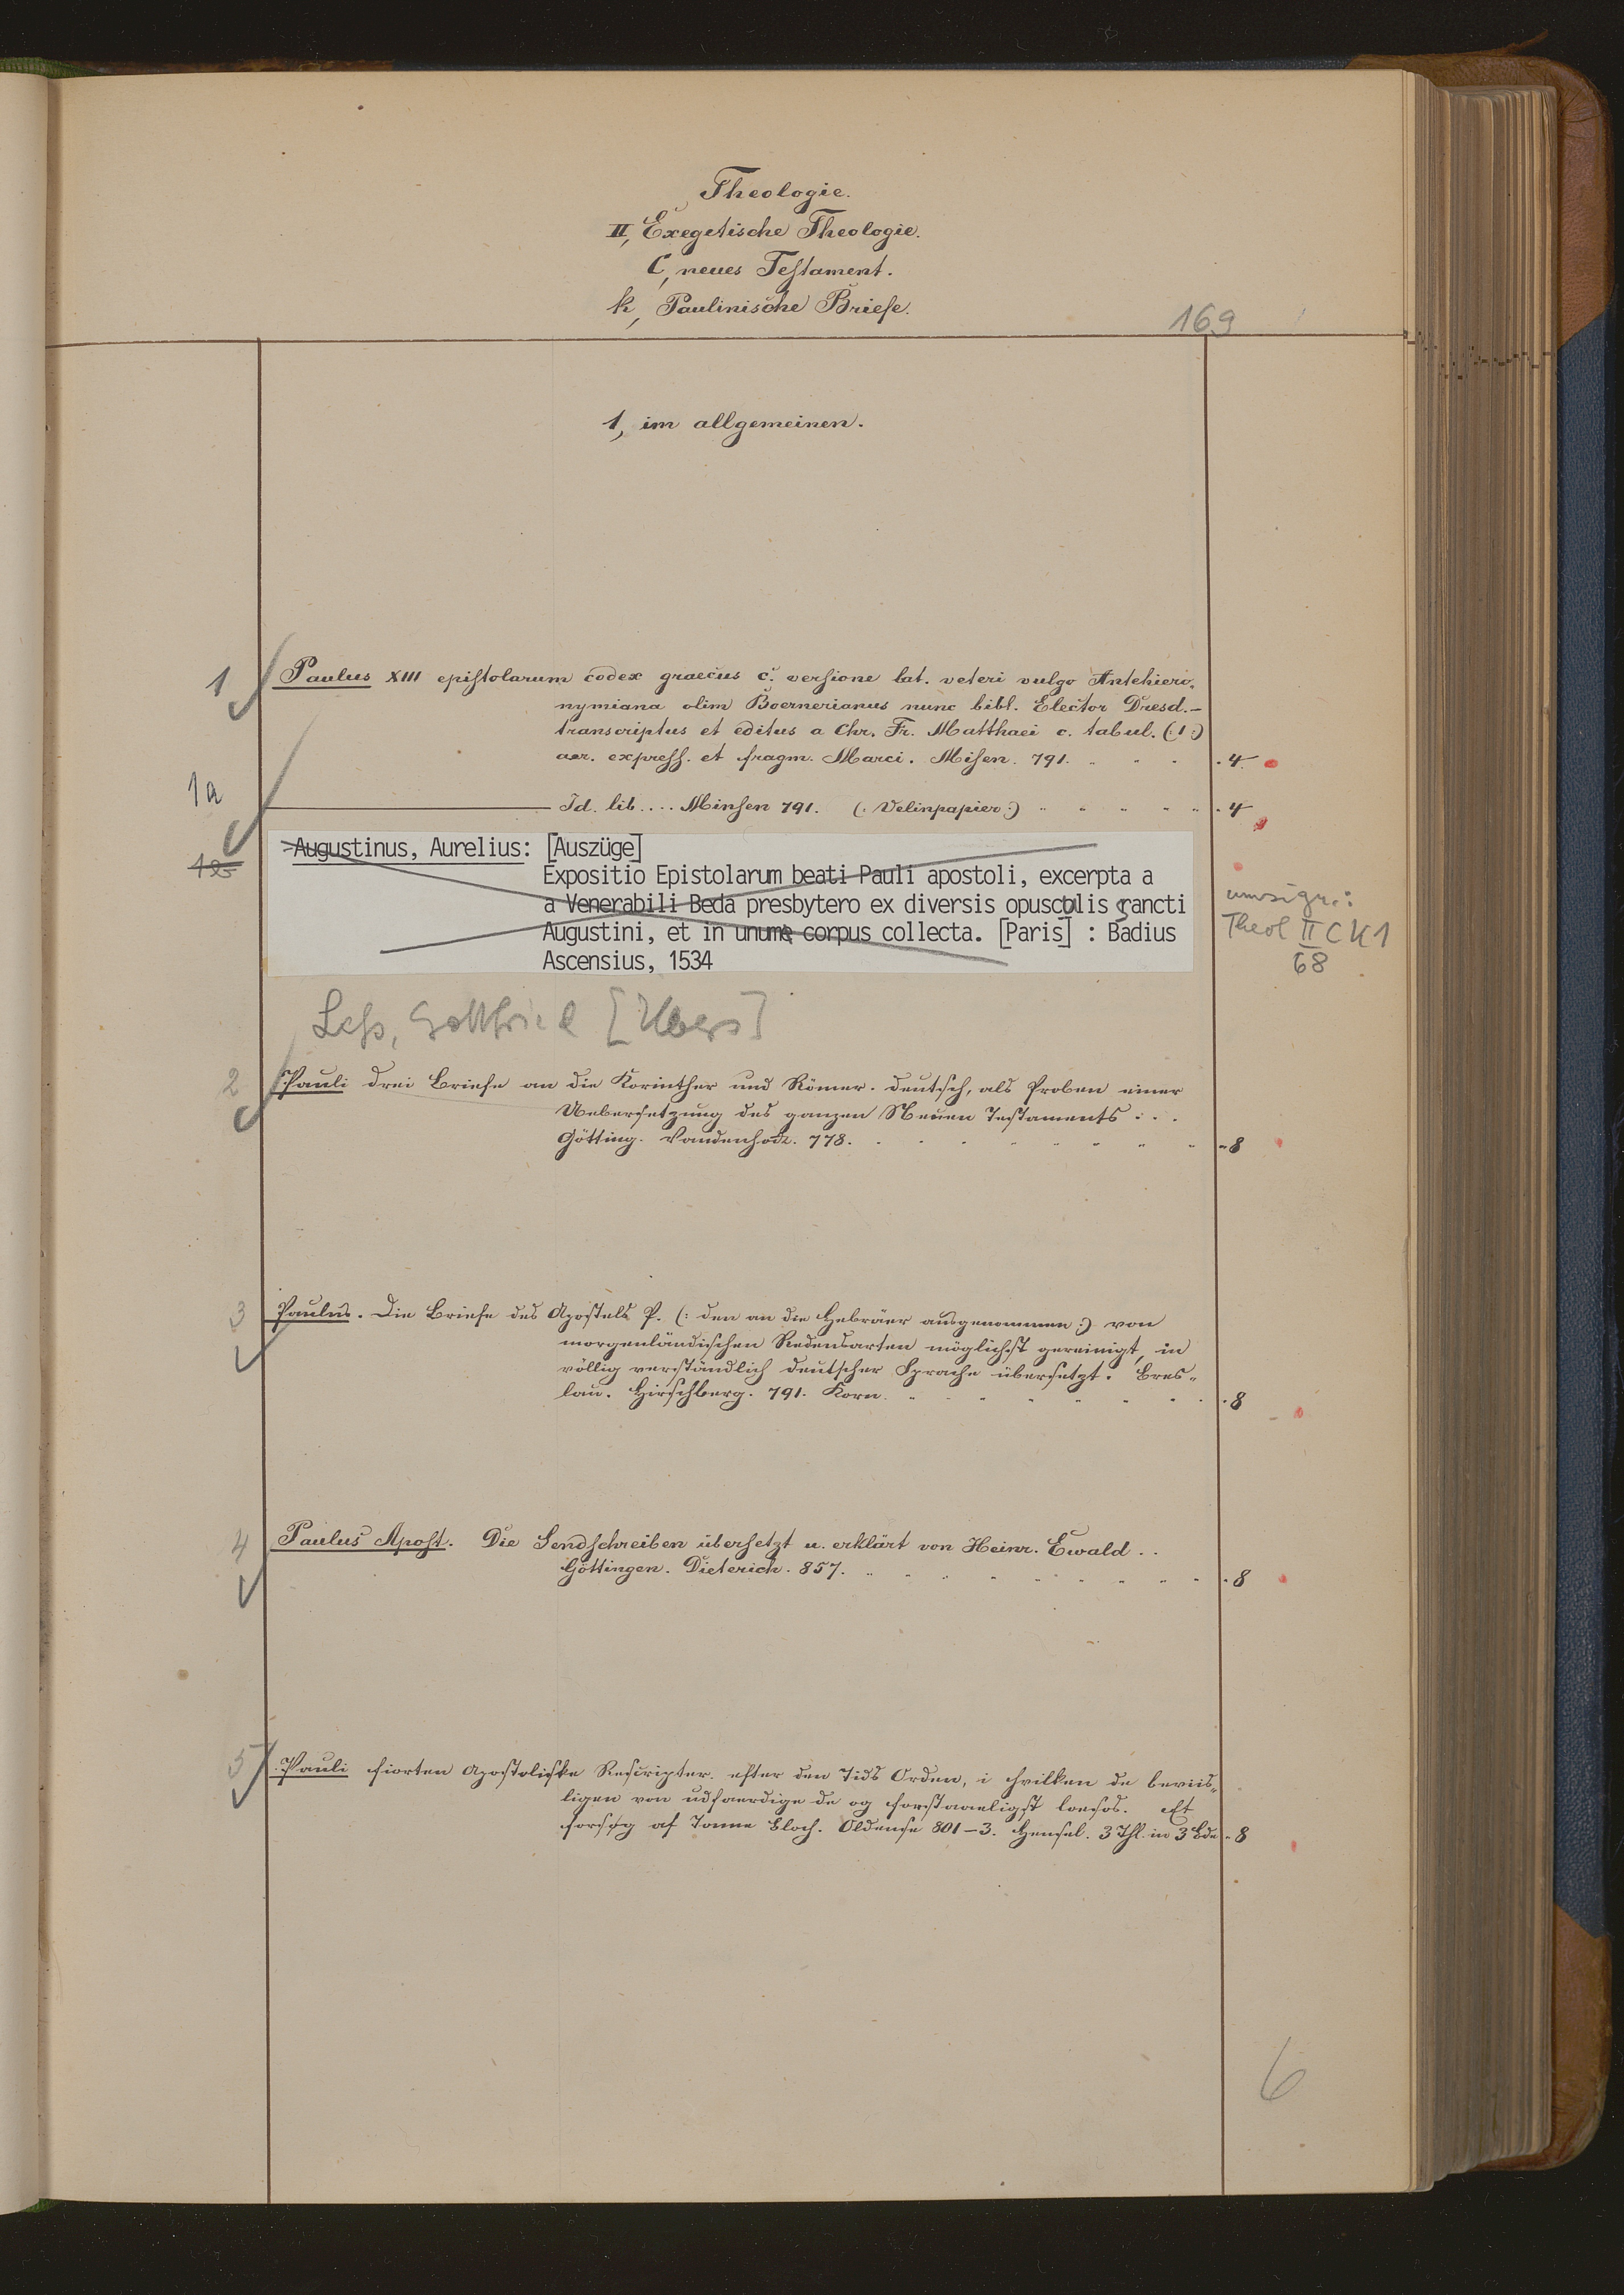 Theologie.
II, Exegetische Theologie.
C, neues Testament.
k, Paulinische Briefe.
169
1, im allgemeinen.
1 Paulus XIII epistolarum codex graecus c. versione lat. veteri vulgo Antehiero-
nymiana olim Boernerianus nunc bibl. Elector Dresd.-
transcriptus et editus a Chr. Fr. Matthaei c. tabul. (:1:)
aer. express. et fragm. Marci. Misen. 791. 4
1a Id. lib .... Minsen 791. (: Velinpapier :) 4
Augustinus, Aurelius: [Auszüge]
Expositio Epistolarum beati Pauli apostoli, excerpta a
a Venerabili Beda presbytero ex diversis opusculis sancti
Augustini, et in unum corpus collecta. [Paris] : Badius
Ascensius, 1534
umsign.:
Theol II C K 1
68
Leß, Gottfried [Übers]
2 Pauli drei Briefe an die Korinther und Römer. deutsch, als Proben einer
Uebersetzung des ganzen Neuen Testaments . . .
Götting. Vandenhoek. 778. 8
3 Paulus. Die Briefe des Apostels P. (: den an die Hebräer ausgenommen :) von
morgenländischen Redensarten möglichst gereinigt, in
völlig verständlich deutscher Sprache übersetzt. Bres-
lau. Hirschberg. 791. Korn. 8
4 Paulus Apost. Die Sendschreiben übersetzt u. erklärt von Heinr. Ewald . .
Göttingen. Dieterich. 857. 8
5 Pauli fiorten Apostoliske Rescripter. efter den Tids Orden, i hvilken de beviis-
ligen von udfaerdige de og forstaaeligst laeses. Et
forsøg af Tonne Bloch. Oldense 801-3. Hensel. 3 Thl. in 3 Bde 8
6